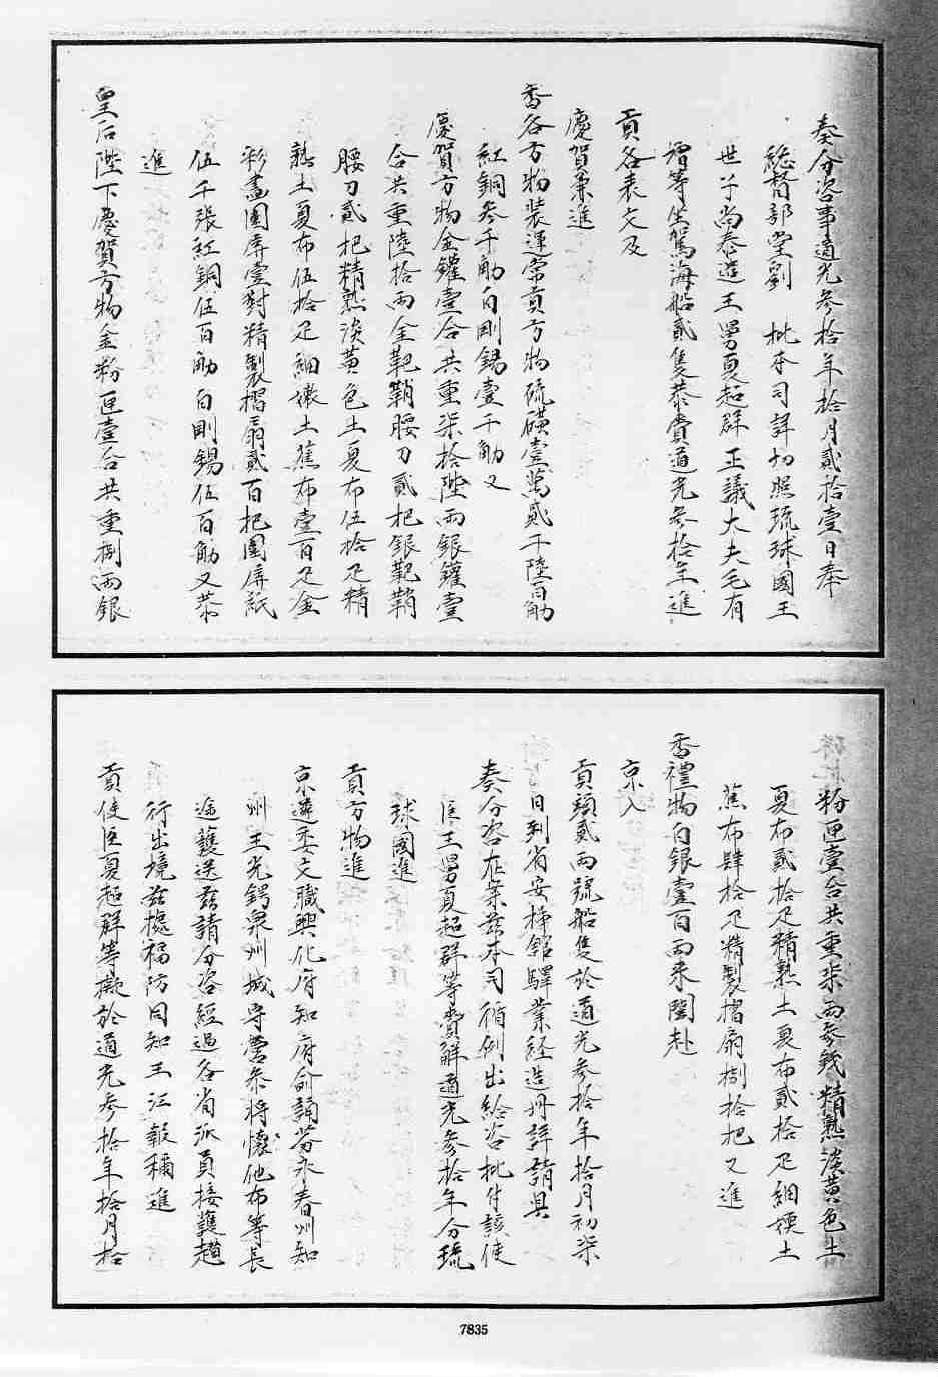 奏分咨事道光參拾年拾月貳拾壹日奉
總督部堂劉　批本司詳切照琉球國王
世子尚泰遣王舅夏超群正議大夫毛有
增等坐駕海船貳隻恭賫道光參拾年進
貢各表文及
慶賀兼進
香各方物裝運常貢方物硫磺壹萬貳千陸百觔
紅銅參千觔白剛錫壹千觔又
慶賀方物金鑵壹合共重柒拾陸兩銀鑵壹
合共重陸拾兩金靶鞘腰刀貳把銀靶鞘
腰刀貳把精熟淡黃色土夏布伍拾疋精
熟土夏布伍拾疋細嫩土蕉布壹百疋金
彩畫圍屏壹對精製摺扇貳百把圍屏紙
伍千張紅銅伍百觔白剛錫伍百觔又恭
進
皇后陛下慶賀方物金粉匣壹合共重捌兩銀
粉匣壹合共重柒兩參錢精熟淡黃色土
夏布貳拾疋精熟土夏布貳拾疋細嫩土
蕉布肆拾疋精製摺扇捌拾把又進
香禮物白銀壹百兩來閩赴
京入
貢頭貳兩號船隻於道光參拾年拾月初柒
日到省安揷館驛業經造册詳請具
奏分咨在案茲本司循例出給咨批付該使
臣王舅夏超群等賫解道光參拾年分琉
球國進
貢方物進
京遴委文職興化府知府俞誦芬永春州知
州王光鍔泉州城守營參將懷他布等長
途護送茲請分咨經過各省派員接護趲
行出境茲據福防同知王江報稱進
貢使臣夏超群等擬於道光參拾年拾月拾
7835